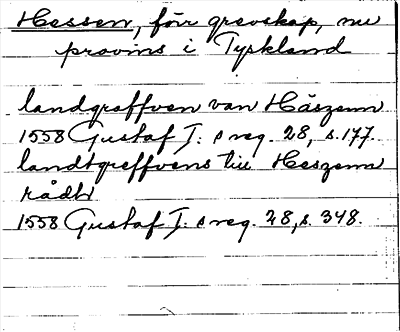 Hessen, förr grevskap, nu
provins i Tyskland
landgraffven van Häszenn
1558 Gustaf I: s reg. 28, s. 177.
landtgreffvens till Heszenn
rådh
1558 Gustaf I: s reg. 28, s. 348.